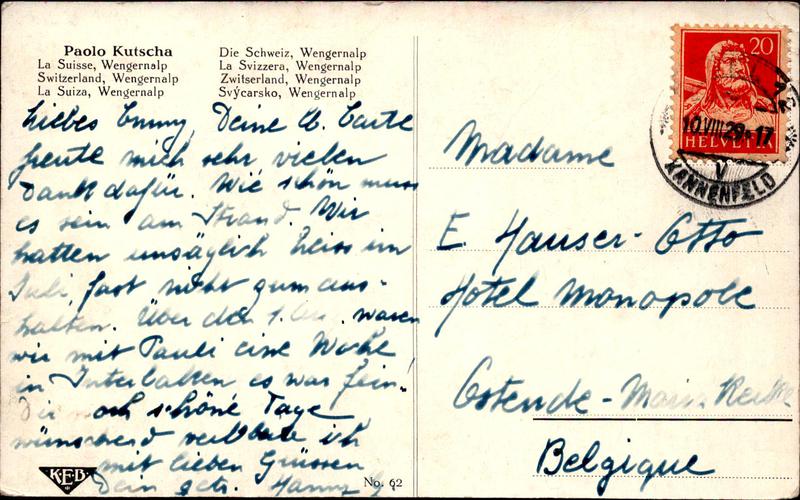 Paolo Kutscha
La Suisse, Wengernalp
Switzerland, Wengernalp
La Suiza, Wengernalp
Die Schweiz, Wengernalp
La Svizzera, Wengernalp
Zwitserland, Wengernalp
Svýcarsko, Wengernalp
Liebes Emmy, Deine lb. Carte
freute mich sehr vielen
Dank dafür. Wie schön muss
es sein am Strand. Wir
hatten unsäglich heiss im
Juli, fast nicht zum aus-
halten. Über den 1. waren
wir mit Pauli eine Woche
in Interlaken es war fein!
Dir noch schöne Tage
wünschend verbleibe ich
mit lieben Grüssen
Dein getr. Hanny
K.E.B.
No. 62
20
HELVETIA
10.VIII.29.-17
V
KANNENFELD
Madame
E. Hauser-Otto
Hotel Monopole
Ostende-
Belgique